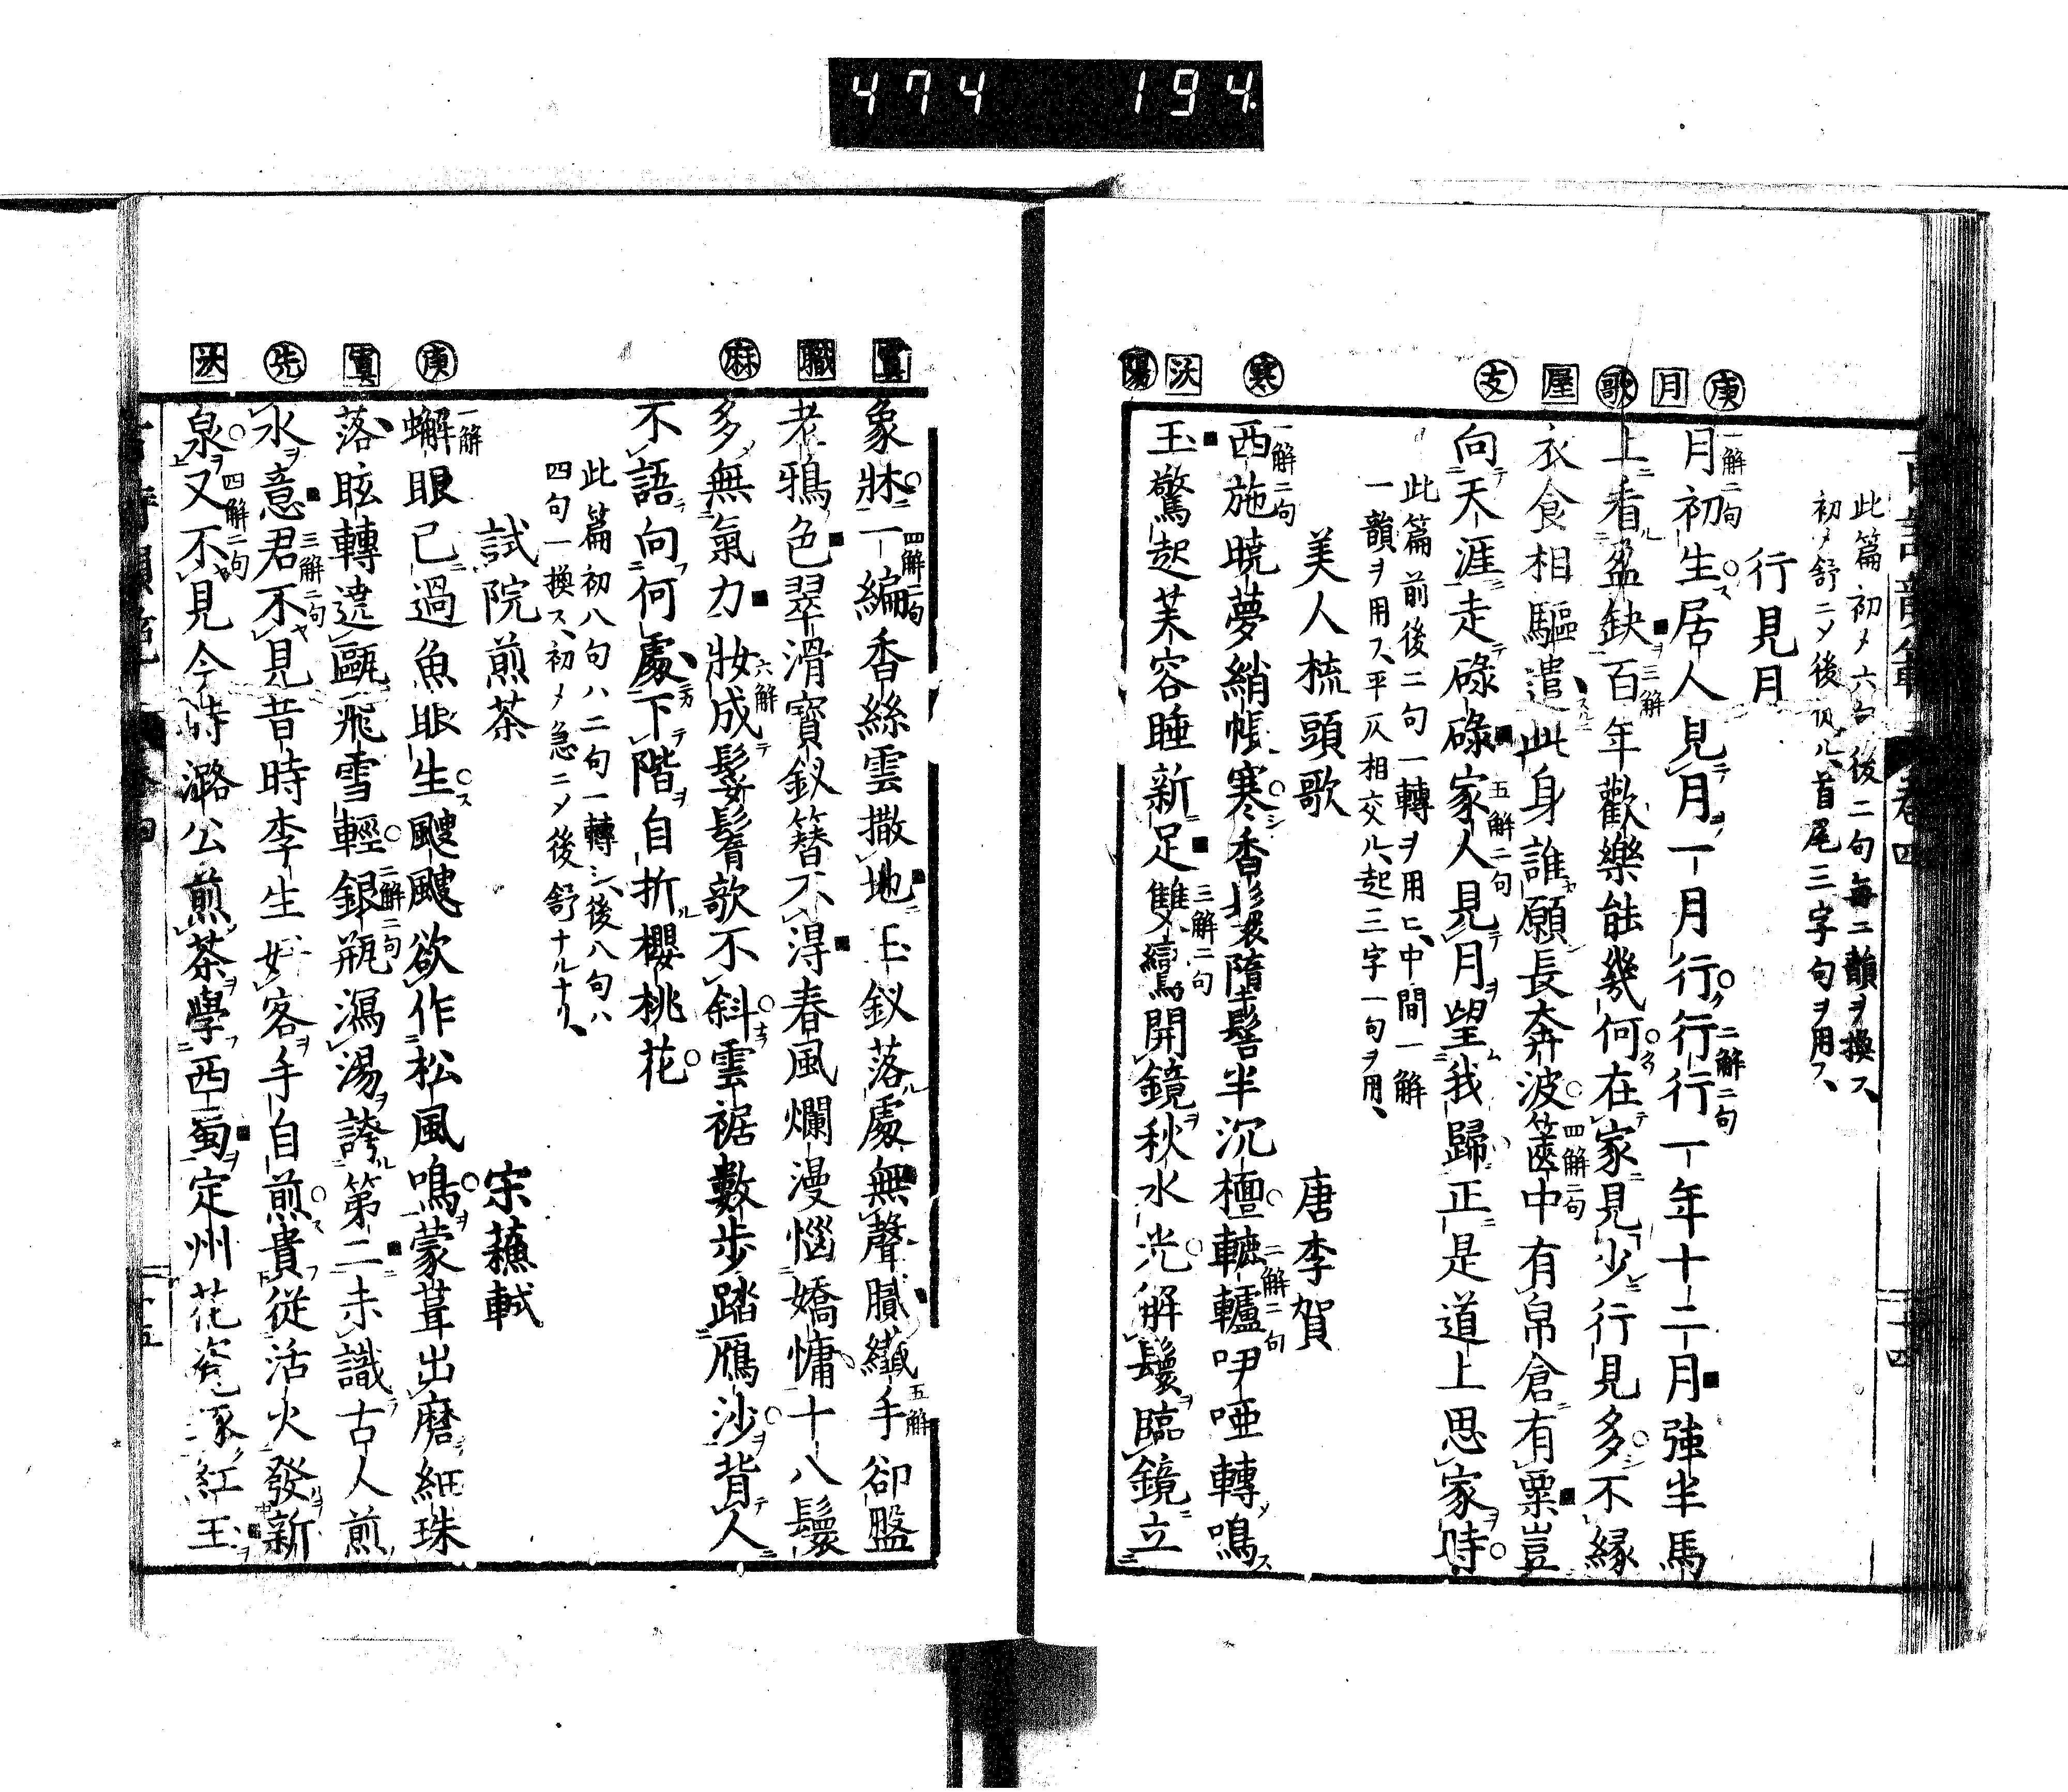 474 194
庚 月 歌 屋 支 寒 沃 陽
此篇初メ六句後二句每ニ韻ヲ換ス、
初メ舒ニメ後促ル、首尾三字句ヲ用フ、
行見月
一解二句
月初生居人見月一月行行行一年十二月強半馬
二解二句
上看盈缺百年歡樂能幾何在家見少行見多不緣
三解
衣食相驅遣此身誰願長奔波篋中有帛倉有粟豈
四解二句
向天涯走碌碌家人見月望我歸正是道上思家時
五解二句
此篇前後二句一轉ヲ用ヒ、中間一解
一韻ヲ用ス、平仄相交ル、起三字一句ヲ用、
美人梳頭歌 唐李賀
一解二句
西施曉夢綃帳寒香鬟隋髻半沉檀轆轤咿啞轉鳴
二解二句
玉驚起芙容睡新足雙鸞開鏡秋水光解鬟臨鏡立
三解二句
寘 職 麻 庚 寘 先 沃
象牀一編香絲雲撒地玉釵落處無聲膩纖手卻盤
四解二句
五解
老鴉色翠滑寶釵簪不得春風爛漫惱嬌慵十八鬟
多無氣力妝成鬖鬌欹不斜雲裾數步踏鴈沙背人
六解
不語向何處下階自折櫻桃花
此篇初八句ハ二句一轉シ、後八句ハ
四句一換ス、初メ急ニメ後舒ナルナリ、
試院煎茶 宋蘓軾
一解
蠏眼已過魚眼生颼颼欲作松風鳴蒙茸出磨細珠
落眩轉遶甌飛雪輕銀瓶瀉湯誇第二未識古人煎
二解二句
水意君不見昔時李生好客手自煎貴從活火發新
三解二句
泉又不見今時潞公煎茶學西蜀定州花瓷琢紅玉
四解二句